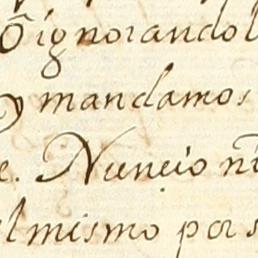 õ ignorandol
y mandamos
e. Nuncio nr̃
el mismo por s